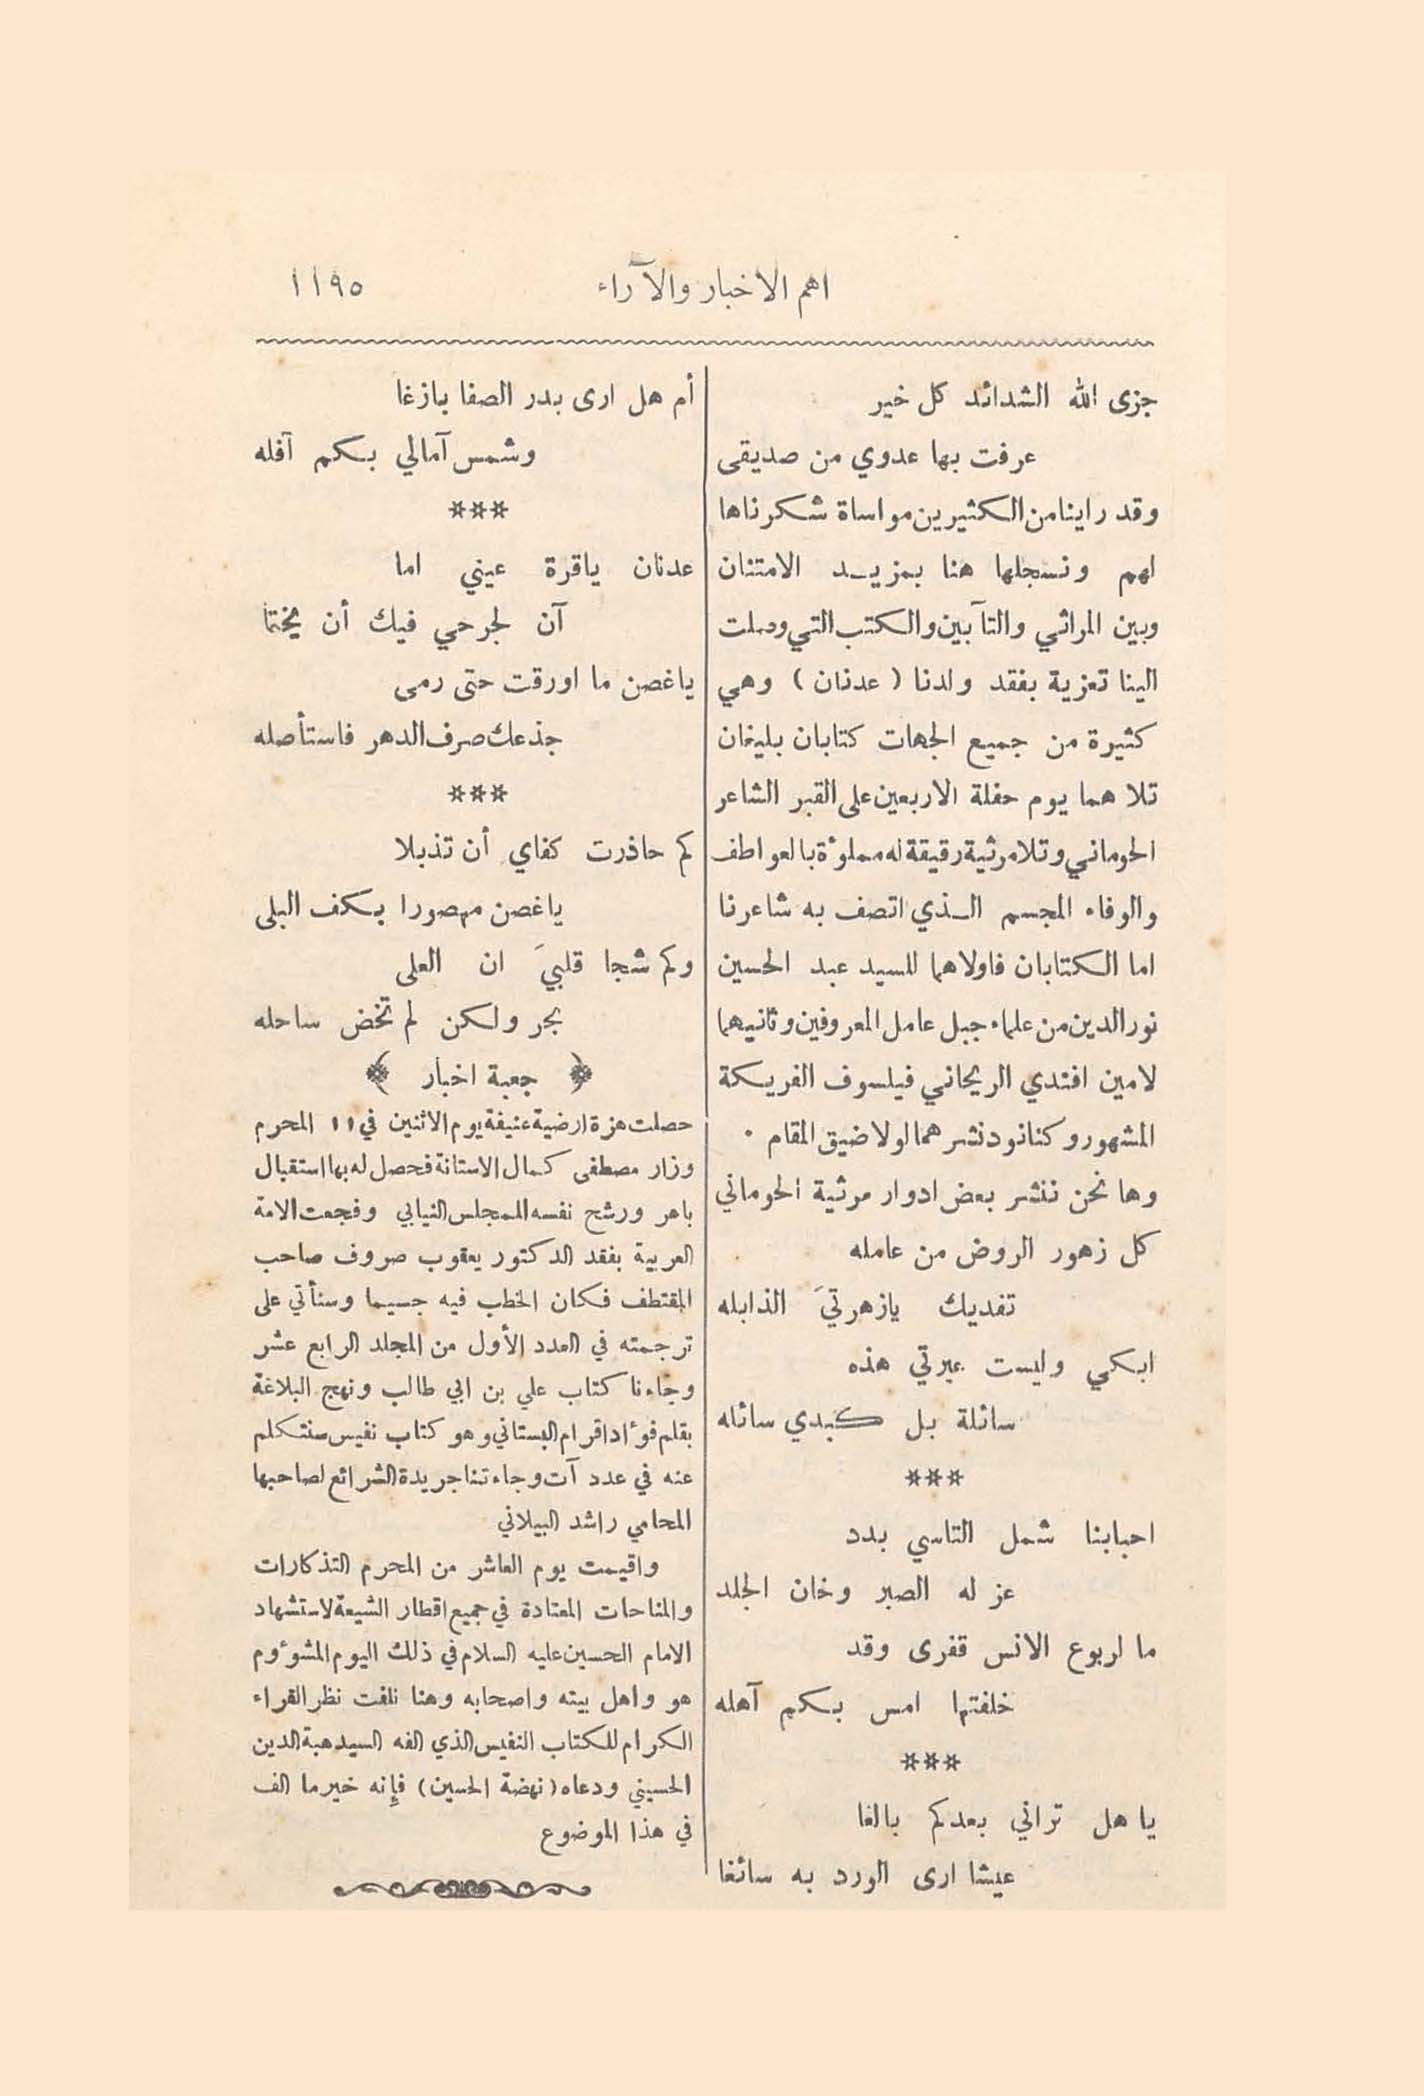 اهم الاخبار والآراء ١١٩٥
جزى الله الشدائد كل خير
عرفت بها عدوي من صديقى
وقد راينا من الكثيرين مواساة شكرناها
لهم ونسجلها هنا بمزيد الامتنان
وبين المراثي والتآبين والكتب التي وصلت
الينا تعزية بفقد ولدنا ( عدنان ) وهي
كثيرة من جميع الجهات كتابان بليغان
تلا هما يوم حفلة الاربعين على القبر الشاعر
الحوماني وتلا مرثية رقيقة له مملوءة بالعواطف
والوفاء المجسم الذي اتصف به شاعرنا
اما الكتابان فاولاهما للسيد عبد الحسين
نور الدين من علماء جبل عامل المعروفين وثانيهما
لامين افندي الريحاني فيلسوف الفريكة
المشهور وكنا نود نشرهما لولا ضيق المقام .
وها نحن ننشر بعض ادوار مرثية الحوماني
كل زهور الروض من عامله
تفديك يازهرتيَ الذابله
ابكي وليست عبرتي هذه
سائلة بل كبدي سائله
***
احبابنا شمل التاسي بدد
عز له الصبر وخان الجلد
ما لربوع الانس قفرى وقد
خلفتها امس بكم آهله
***
يا هل تراني بعدكم بالغا
عيشا ارى الورد به سائغا
أم هل ارى بدر الصفا بازغا
وشمس آمالي بكم آفله
***
عدنان ياقرة عيني اما
آن لجرحي فيك أن يختما
ياغصن ما اورقت حتى رمى
جذعك صرف الدهر فاستأصله
***
كم حاذرت كفاي أن تذبلا
ياغصن مهصورا بكف البلى
وكم شجا قلبيَ ان العلى
بحر ولكن لم تخض ساحله
﴿ جعبة اخبار ﴾
حصلت هزة ارضية عنيفة يوم الاثنين في ١١ المحرم
وزار مصطفى كمال الاستانة فحصل له بها استقبال
باهر ورشح نفسه للمجلس النيابي وفجعت الامة
العربية بفقد الدكتور يعقوب صروف صاحب
المقتطف فكان الخطب فيه جسيما وسنأتي على
ترجمته في العدد الأول من المجلد الرابع عشر
وجاءنا كتاب علي بن ابي طالب ونهج البلاغة
بقلم فوءاد افرام البستاني وهو كتاب نفيس سنتكلم
عنه في عدد آت وجاءتنا جريدة الشرائع لصاحبها
المحامي راشد البيلاني
واقيمت يوم العاشر من المحرم التذكارات
والمناحات المعتادة في جميع اقطار الشيعة لاستشهاد
الامام الحسين عليه السلام في ذلك اليوم المشوءوم
هو واهل بيته واصحابه وهنا نلفت نظر القراء
الكرام للكتاب النفيس الذي الفه السيد هبة الدين
الحسيني ودعاه ( نهضة الحسين ) فإنه خير ما الف
في هذا الموضوع